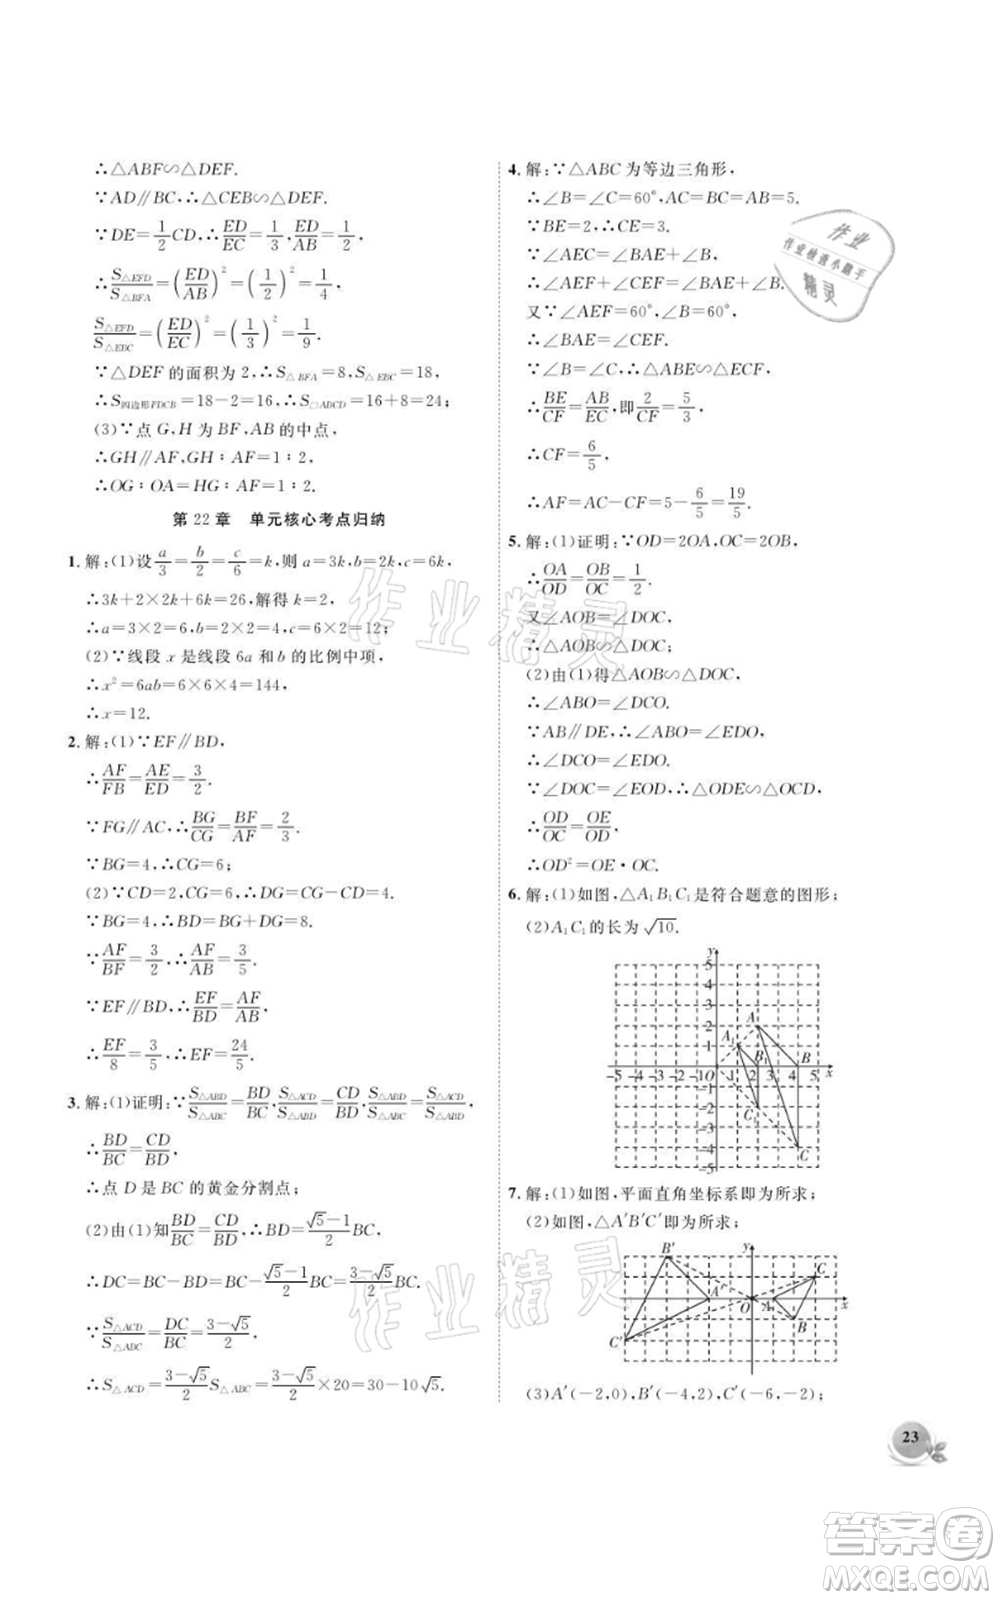 ∴△ABF∽△DEF.
∵AD∥BC,∴△CEB∽△DEF.
∵DE=1/2CD,∴ED/EC=1/3,ED/AB=1/2,
∴S△EFD/S△BFA=(ED/AB)²=(1/2)²=1/4,
S△EFD/S△EBC=(ED/EC)²=(1/3)²=1/9.
∵△DEF 的面积为 2,∴S△BFA=8,S△EBC=18,
∴S四边形FDCB=18-2=16,∴S□ABCD=16+8=24;
(3)∵点 G,H 为 BF,AB 的中点,
∴GH∥AF,GH∶AF=1∶2,
∴OG∶OA=HG∶AF=1∶2.
第 22 章 单元核心考点归纳
1. 解:(1)设a/3=b/2=c/6=k,则 a=3k,b=2k,c=6k,
∴3k+2×2k+6k=26,解得 k=2,
∴a=3×2=6,b=2×2=4,c=6×2=12;
(2)∵线段 x 是线段 6a 和 b 的比例中项,
∴x²=6ab=6×6×4=144,
∴x=12.
2. 解:(1)∵EF∥BD,
∴AF/FB=AE/ED=3/2.
∵FG∥AC,∴BG/CG=BF/AF=2/3.
∵BG=4,∴CG=6;
(2)∵CD=2,CG=6,∴DG=CG-CD=4.
∵BG=4,∴BD=BG+DG=8.
∵AF/BF=3/2,∴AF/AB=3/5.
∵EF∥BD,∴EF/BD=AF/AB,
∴EF/8=3/5,∴EF=24/5.
3. 解:(1)证明:∵S△ABD/S△ABC=BD/BC,S△ACD/S△ABD=CD/BD,S△ABD/S△ABC=S△ACD/S△ABD,
∴BD/BC=CD/BD,
∴点 D 是 BC 的黄金分割点;
(2)由(1)知BD/BC=CD/BD,∴BD=√5-1/2BC,
∴DC=BC-BD=BC-√5-1/2BC=3-√5/2BC,
∵S△ACD/S△ABC=DC/BC=3-√5/2,
∴S△ACD=3-√5/2S△ABC=3-√5/2×20=30-10√5.
4. 解:∵△ABC 为等边三角形,
∴∠B=∠C=60°,AC=BC=AB=5.
∵BE=2,∴CE=3.
∵∠AEC=∠BAE+∠B,
∴∠AEF+∠CEF=∠BAE+∠B.
又∵∠AEF=60°,∠B=60°,
∴∠BAE=∠CEF.
∵∠B=∠C,∴△ABE∽△ECF,
∴BE/CF=AB/EC,即2/CF=5/3,
∴CF=6/5,
∴AF=AC-CF=5-6/5=19/5.
5. 解:(1)证明:∵OD=2OA,OC=2OB,
∴OA/OD=OB/OC=1/2.
又∵∠AOB=∠DOC,
∴△AOB∽△DOC;
(2)由(1)得△AOB∽△DOC,
∴∠ABO=∠DCO.
∵AB∥DE,∴∠ABO=∠EDO,
∴∠DCO=∠EDO.
∵∠DOC=∠EOD,∴△ODE∽△OCD,
∴OD/OC=OE/OD,
∴OD²=OE·OC.
6. 解:(1)如图,△A₁B₁C₁是符合题意的图形;
(2)A₁C₁的长为√10.
y
5
4
3
2
1
A
A₁
B₁
B
-5 -4 -3 -2 -1 O 1 2 3 4 5 x
-1
-2
-3
-4
-5
C₁
C
7. 解:(1)如图,平面直角坐标系即为所求;
(2)如图,△A′B′C′即为所求;
B′ y
C
A′ O A x
B
C′
(3)A′(-2,0),B′(-4,2),C′(-6,-2);
23
作业
作业检查小助手
精灵
作业精灵
作业精灵
答案卷
MXQE.COM